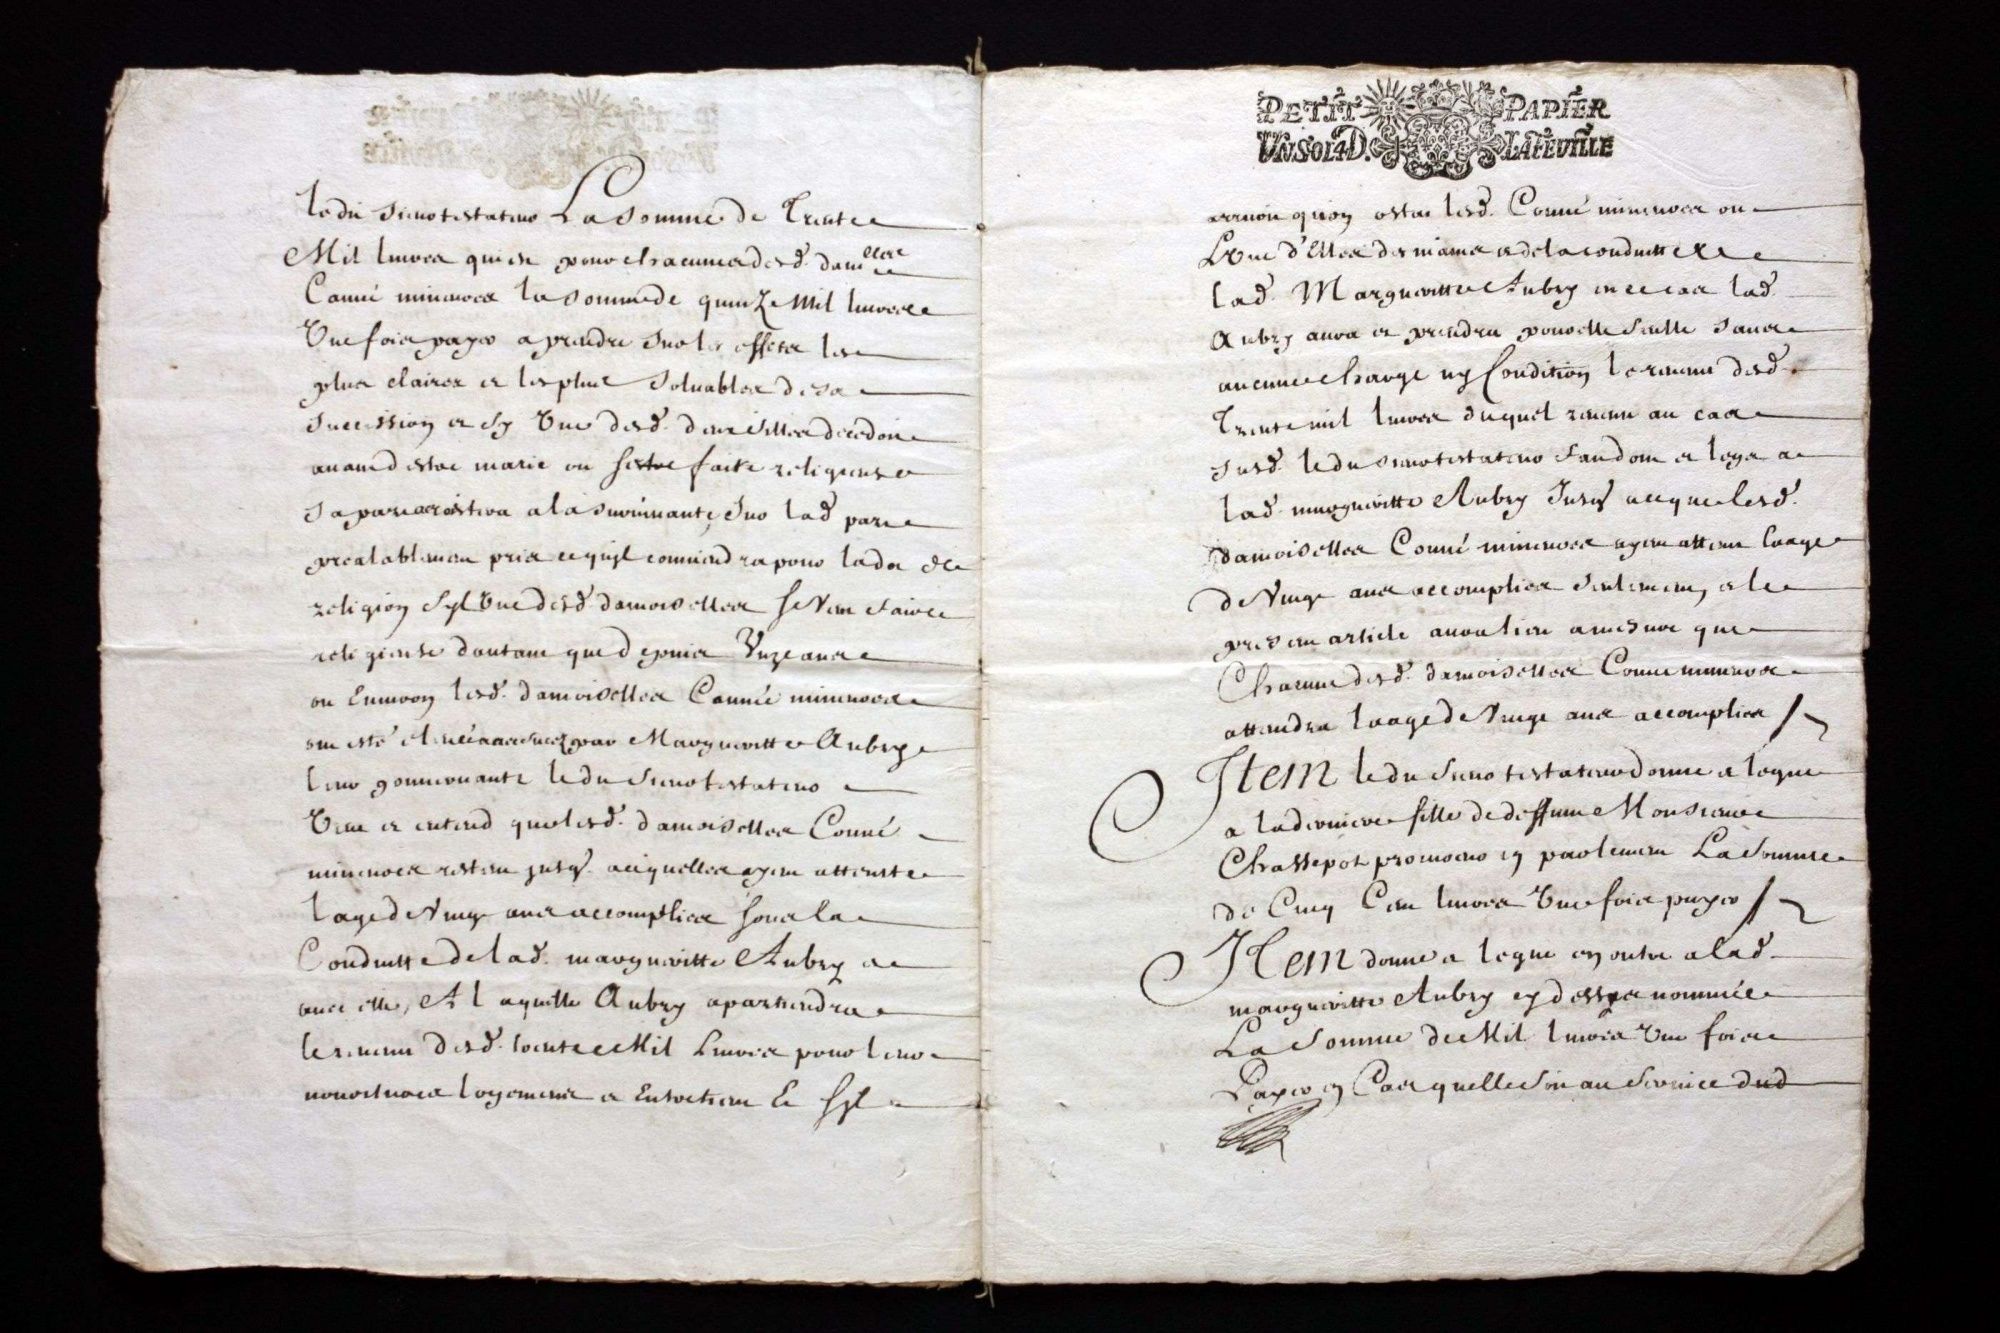 ledit Sieur testateur La somme de Trente
Mil livres qui est pour chacune desd. dam.lles
Conné mineures la somme de quinze Mil livres
Une fois payé a prendre sur les effets les
plus claires et les plus Soluables de sa
succession et sy Une desd. deux filles decedoit
auant destre marie ou faitte religieuse
sa part acroistra a la suruiuante, sur lad part
prealablement pris ce quil conuiendra pour la dot de
religion syl Une desd. damoiselles se Veut faire
religieuse dautant que depuis Unze ans
ou Enuiron lesd. damoiselles Connée mineures
ont esté par Margueritte Aubry
leur gouuernante ledit Sieur testateur
Veut et entend que lesd. damoiselles Conné
mineures restent jusq. a ce quelles ayent atteint
lage de Vingt ans accomplies sous la
Conduitte de lad. margueritte Aubry
auec elle, Et A laquelle Aubry apartiendra
le reuenu desd. trente Mil Liures pour leur
nouritures logements et Entretient Et Syl
PETIT PAPIER
VN SOL 4 D. LA FEVILLE
arriuoit quon ostat lesd. Conné mineures ou
L'Une d'Elles des mains et de la conduitte de
lad. Margueritte Aubry en ce cas lad.
Aubry aura et prendra pour elle seulle sans
aucune charge ny Condition le reuenu desd.
Trente mil liures duquel reuenu au cas
susd. ledit sieur testateur fait don et legs a
lad. margueritte Aubry Jusq. a ce que lesd.
damoiselles Conné mineures ayent atteint laage
de Vingt ans accomplies seulement, et le
present article aura lieu a mesure que
Chacune desd. damoiselles Conné mineures
attendra laage de Vingt ans accomplies
Item ledit Sieur testateur donne et legue
a la derniere fille de deffunt Monsieur
Chassepot procureur en parlement La Somme
de Cinq Cent liures Une fois payé
Item donne et legue en outre a lad.
margueritte Aubry cy dessus nommée
La Somme de Mil liures Une fois
Payé en Cas quelle soit au Seruice dud